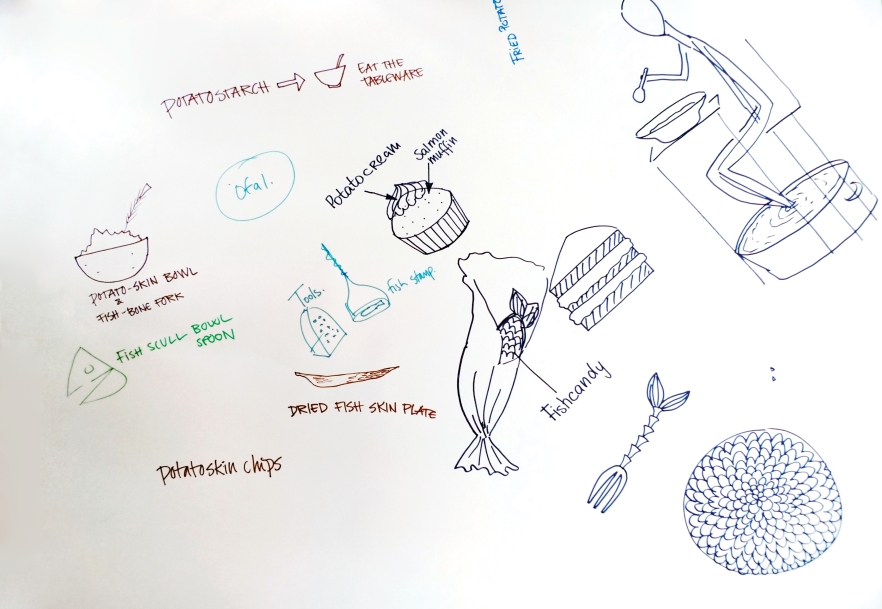 FRIED POTATO
POTATOSTARCH
EAT THE
TABLEWARE
Potatocream
Salmon
muffin
Ofal.
POTATO-SKIN BOWL
&
FISH-BONE FORK
Tools.
fish stamp.
FISH SCULL BOWL
SPOON
DRIED FISH SKIN PLATE
Fishcandy
potatoskin chips